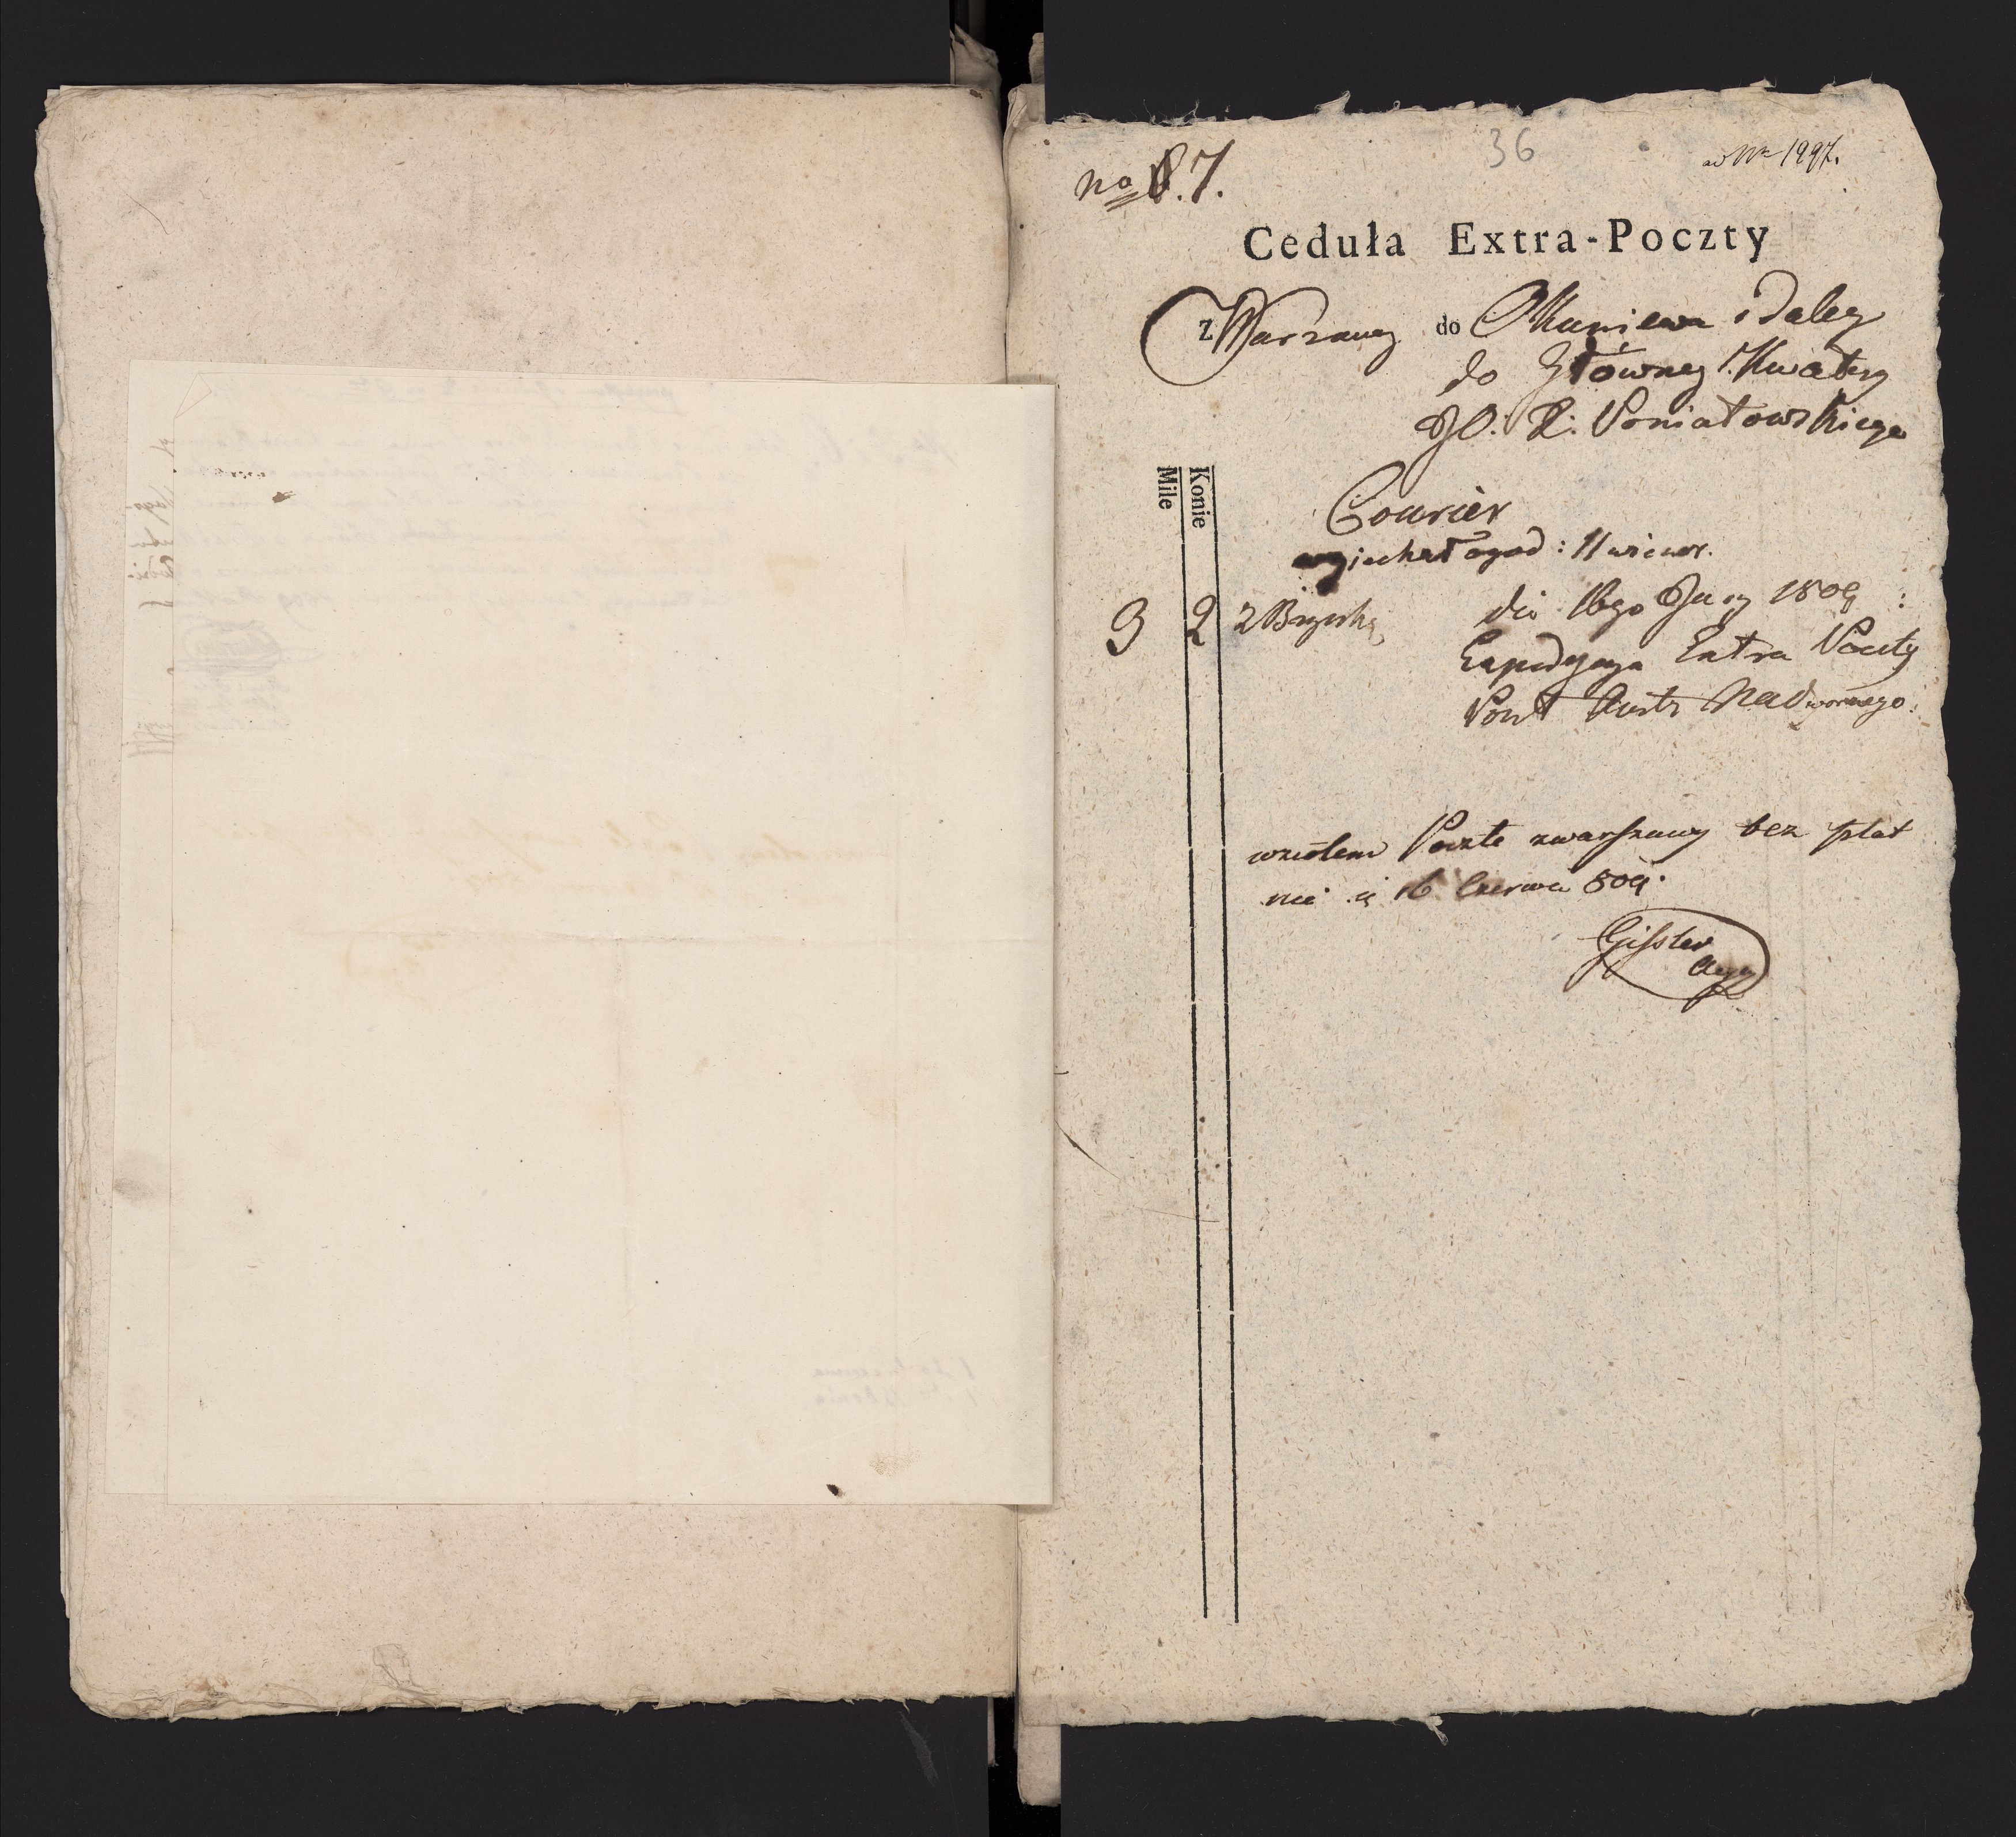 36
ad Nr 1997.
no 7.
Ceduła Extra-Poczty
z Warszawy do Okuniewa i daley
do Główney Kwatery
JO. X. Poniatowskiego
Konie
Mile
Courier
wyjechał o god: 11 wieczor.
3 2 2 Bryczką
die 16go Juny 1809
Expedycya Extra Poczty
Poczt Amtu Nadwornego.
wziołem Poczte zwarszawy bez płat
nie 16 Czerwca 809.
Gissler